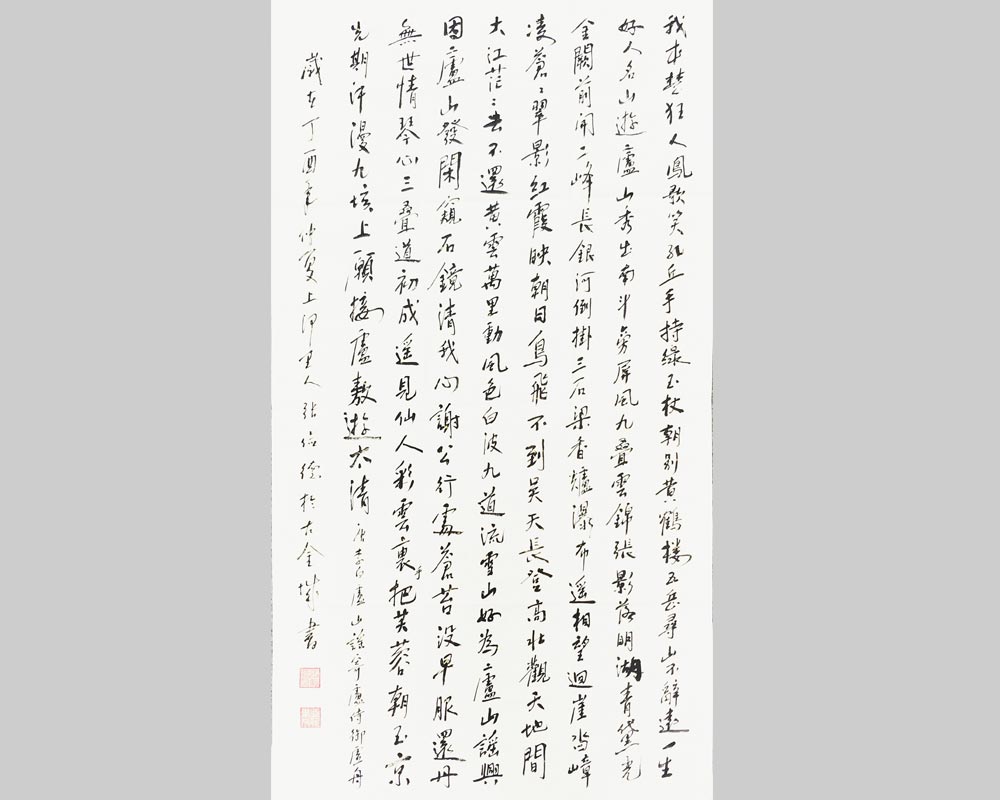 我本楚狂人鳳歌笑孔丘手持綠玉杖朝別黄鶴樓五岳尋山不辭遠一生
好人名山遊廬山秀出南斗旁屏風九疊雲錦張影落明湖青黛光
金闕前開二峰長銀河倒掛三石梁香爐瀑布遥相望迴崖沓嶂
凌蒼蒼翠影紅霞映朝日鳥飛不到吴天長登高壮觀天地間
大江茫茫去不還黄雲萬里動風色白波九道流雪山好為廬山謡興
因廬山發閑窺石鏡清我心謝公行處蒼苔没早服還丹
無世情琴心三疊道初成遥見仙人彩雲裏手把芙蓉朝玉京
先期汗漫九垓上願接盧敖遊太清 唐李白廬山謡寄盧侍御虛舟
歲在丁酉年仲夏上浣里人張於古金城書